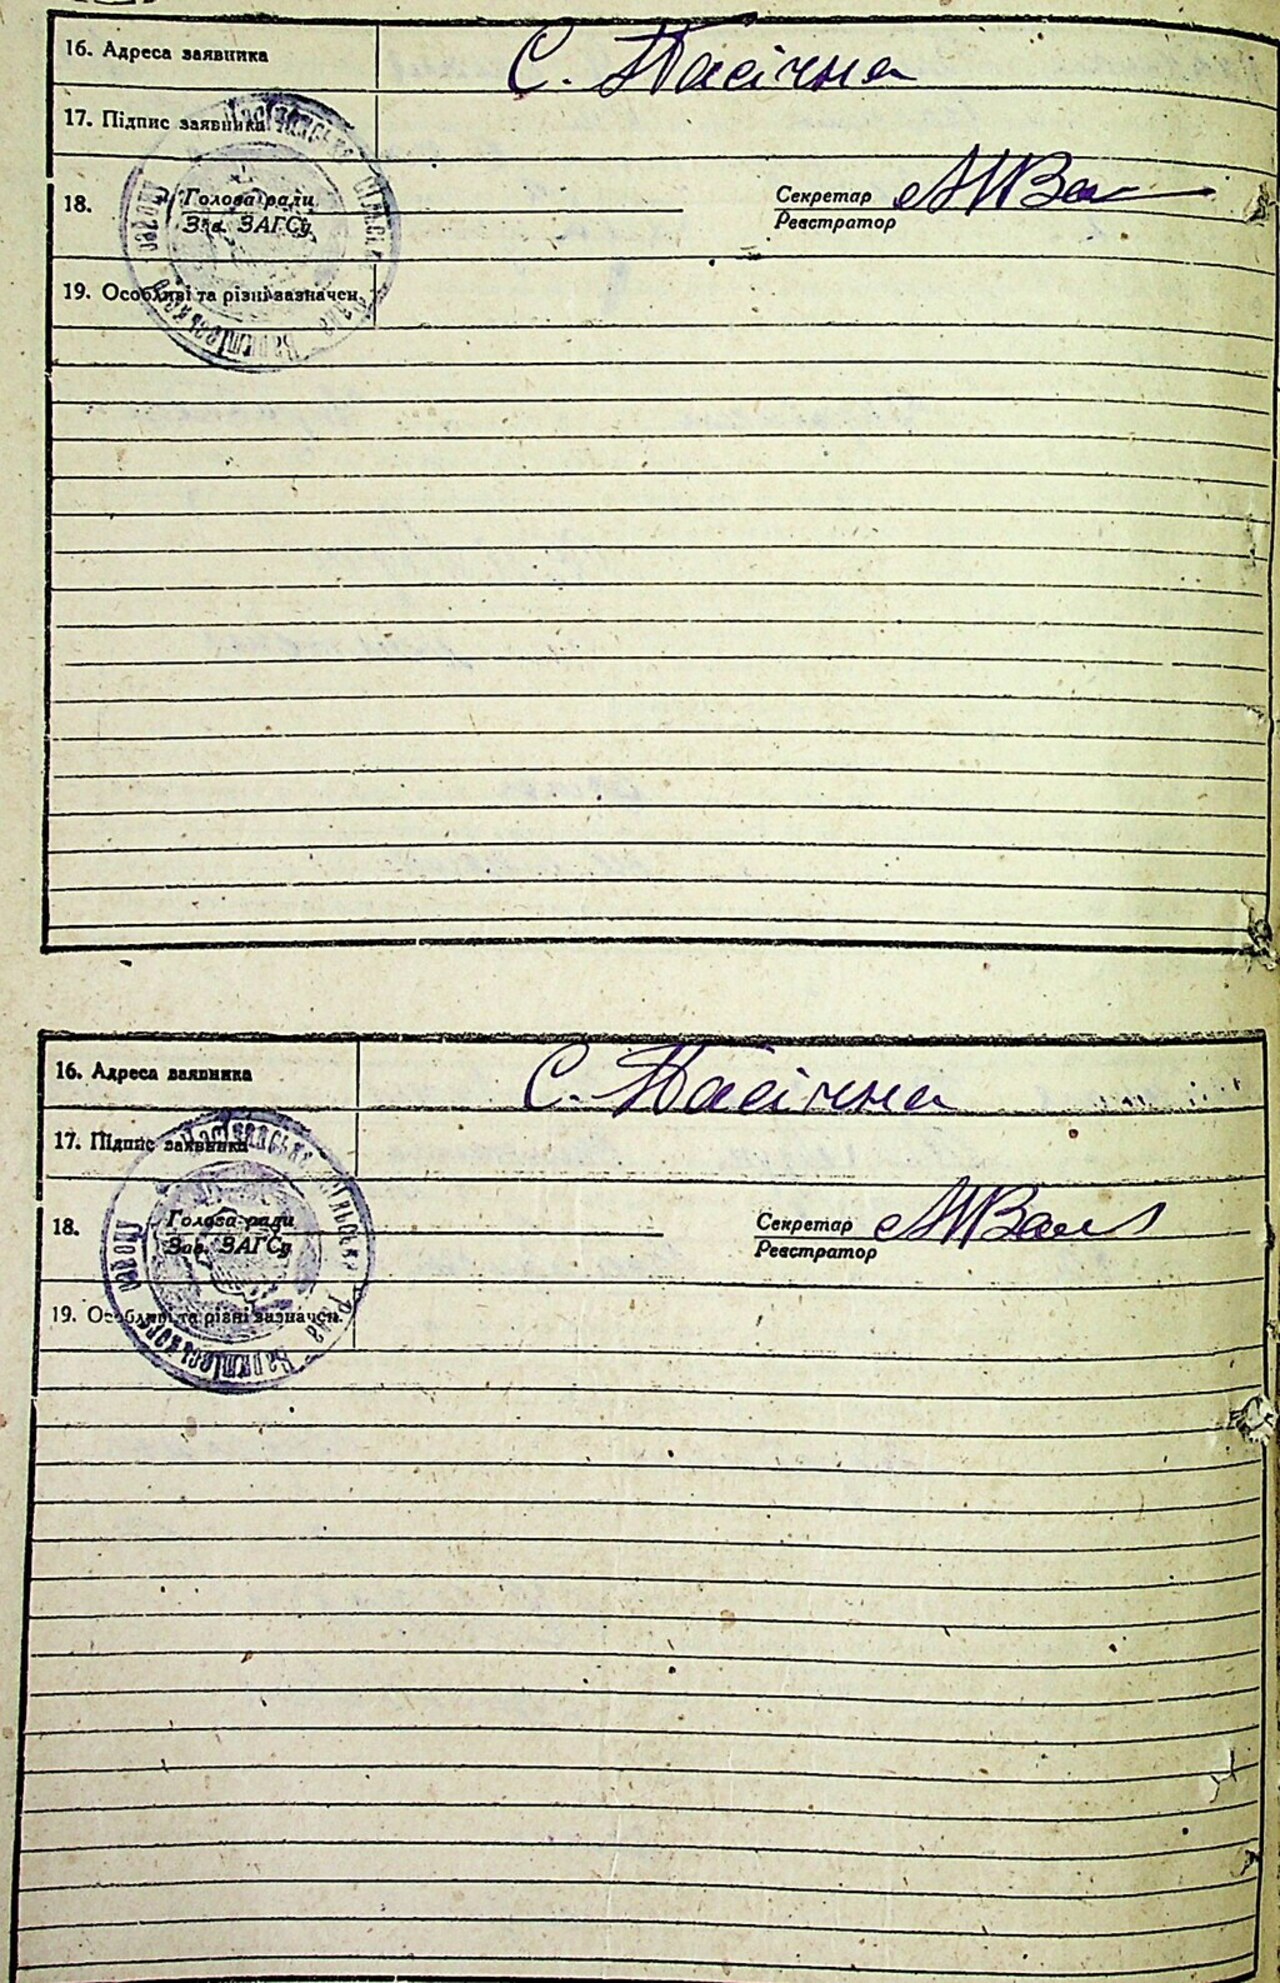 16. Адреса заявника С. Пасічна
17. Підпис заявника
18. Голова ради Секретар
Зав. ЗАГСу Реєстратор
19. Особливі та різні зазначен.
16. Адреса заявника С. Пасічна
17. Підпис заявника
18. Голова ради Секретар
Зав. ЗАГСу Реєстратор
19. Особливі та різні зазначен.